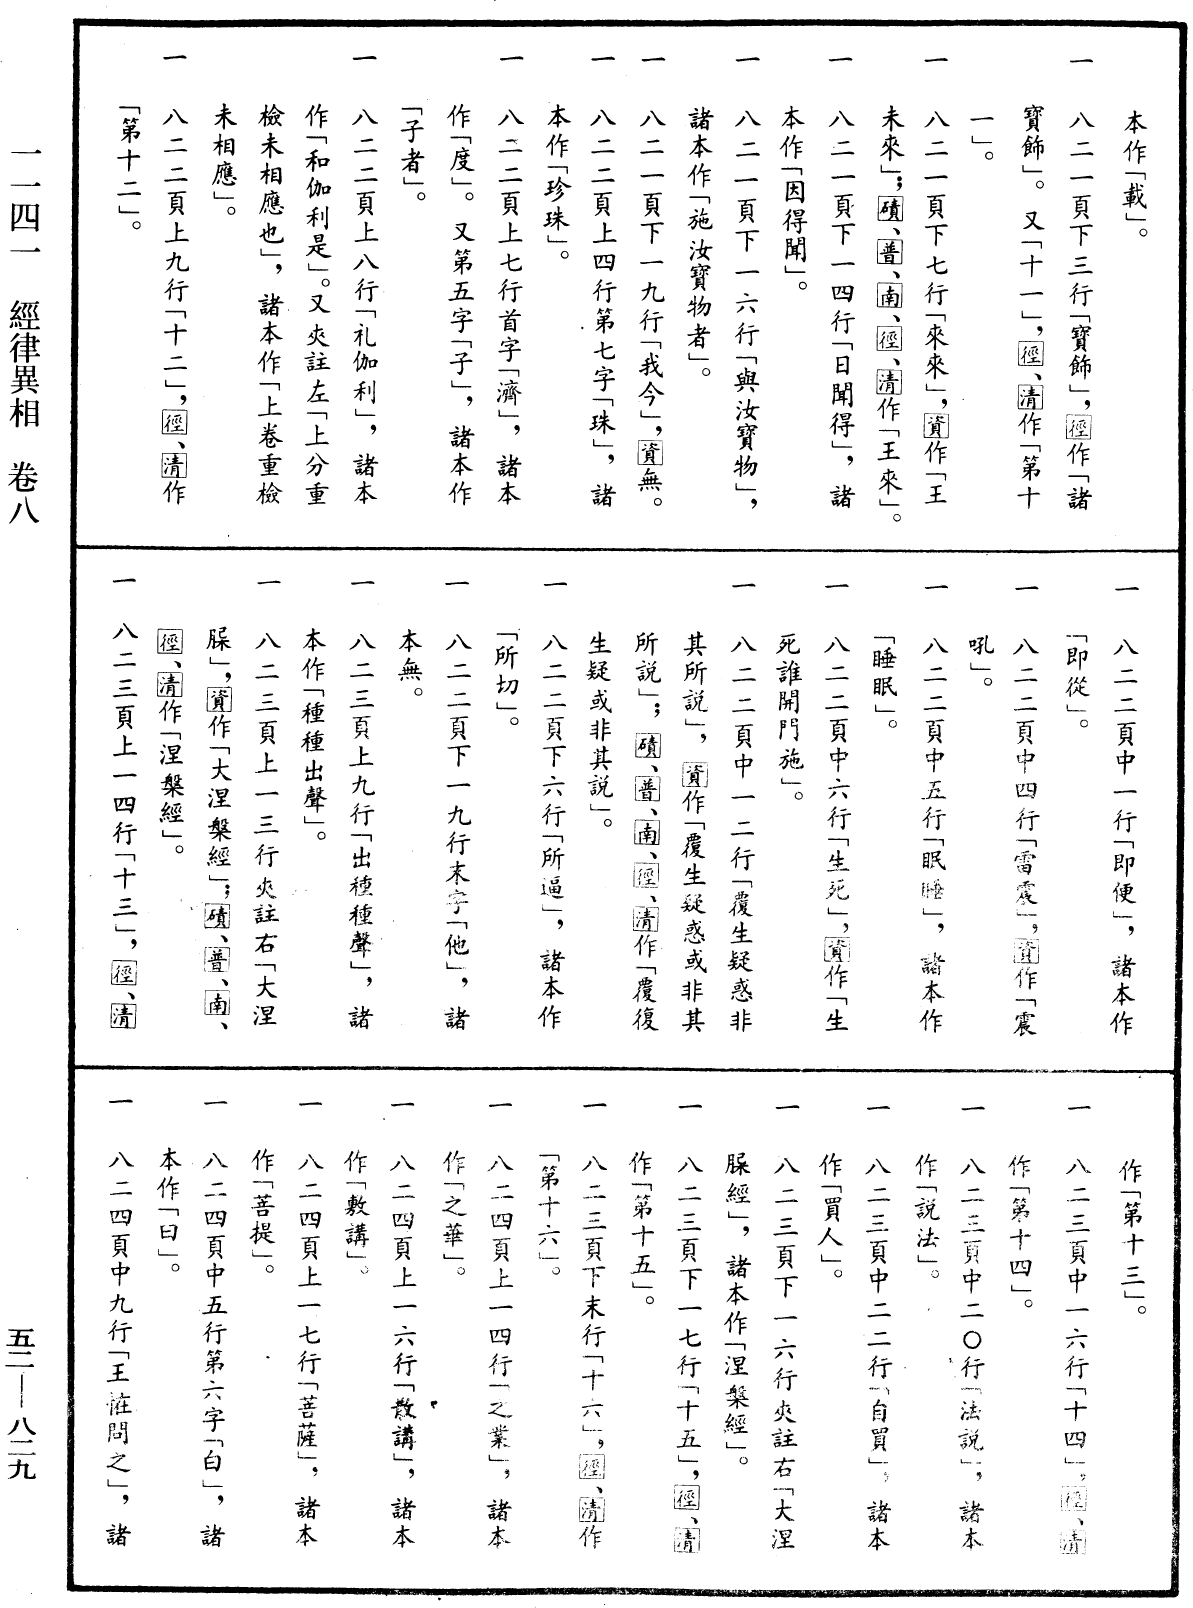 本作「載」。
一 八二一頁下三行「寶飾」，徑作「諸
寶飾」。又「十一」，徑、清作「第十
一」。
一 八二一頁下七行「來來」，資作「王
未來」；磧、普、南、徑、清作「王來」。
一 八二一頁下一四行「日聞得」，諸
本作「因得聞」。
一 八二一頁下一六行「與汝寶物」，
諸本作「施汝寶物者」。
一 八二一頁下一九行「我今」，資無。
一 八二二頁上四行第七字「珠」，諸
本作「珍珠」。
一 八二二頁上七行首字「濟」，諸本
作「度」。又第五字「子」，諸本作
「子者」。
一 八二二頁上八行「礼伽利」，諸本
作「和伽利是」。又夾註左「上分重
檢未相應也」，諸本作「上卷重檢
未相應」。
一 八二二頁上九行「十二」，徑、清作
「第十二」。
一 八二二頁中一行「即便」，諸本作
「即從」。
一 八二二頁中四行「雷震」，資作「震
吼」。
一 八二二頁中五行「眠睡」，諸本作
「睡眠」。
一 八二二頁中六行「生死」，資作「生
死誰開門施」。
一 八二二頁中一二行「覆生疑惑非
其所説」，資作「覆生疑惑或非其
所説」；磧、普、南、徑、清作「覆復
生疑或非其説」。
一 八二二頁下六行「所逼」，諸本作
「所切」。
一 八二二頁下一九行末字「他」，諸
本無。
一 八二三頁上九行「出種種聲」，諸
本作「種種出聲」。
一 八二三頁上一三行夾註右「大涅
𦡀」，資作「大涅槃經」；磧、普、南、
徑、清作「涅槃經」。
一 八二三頁上一四行「十三」，徑、清
作「第十三」。
一 八二三頁中一六行「十四」，徑、清
作「第十四」。
一 八二三頁中二〇行「法説」，諸本
作「説法」。
一 八二三頁中二二行「自買」，諸本
作「買人」。
一 八二三頁下一六行夾註右「大涅
𦡀經」，諸本作「涅槃經」。
一 八二三頁下一七行「十五」，徑、清
作「第十五」。
一 八二三頁下末行「十六」，徑、清作
「第十六」。
一 八二四頁上一四行「之業」，諸本
作「之華」。
一 八二四頁上一六行「散講」，諸本
作「敷講」。
一 八二四頁上一七行「菩薩」，諸本
作「菩提」。
一 八二四頁中五行第六字「白」，諸
本作「曰」。
一 八二四頁中九行「王恠問之」，諸
一一四一 經律異相 卷八
五二—八二九